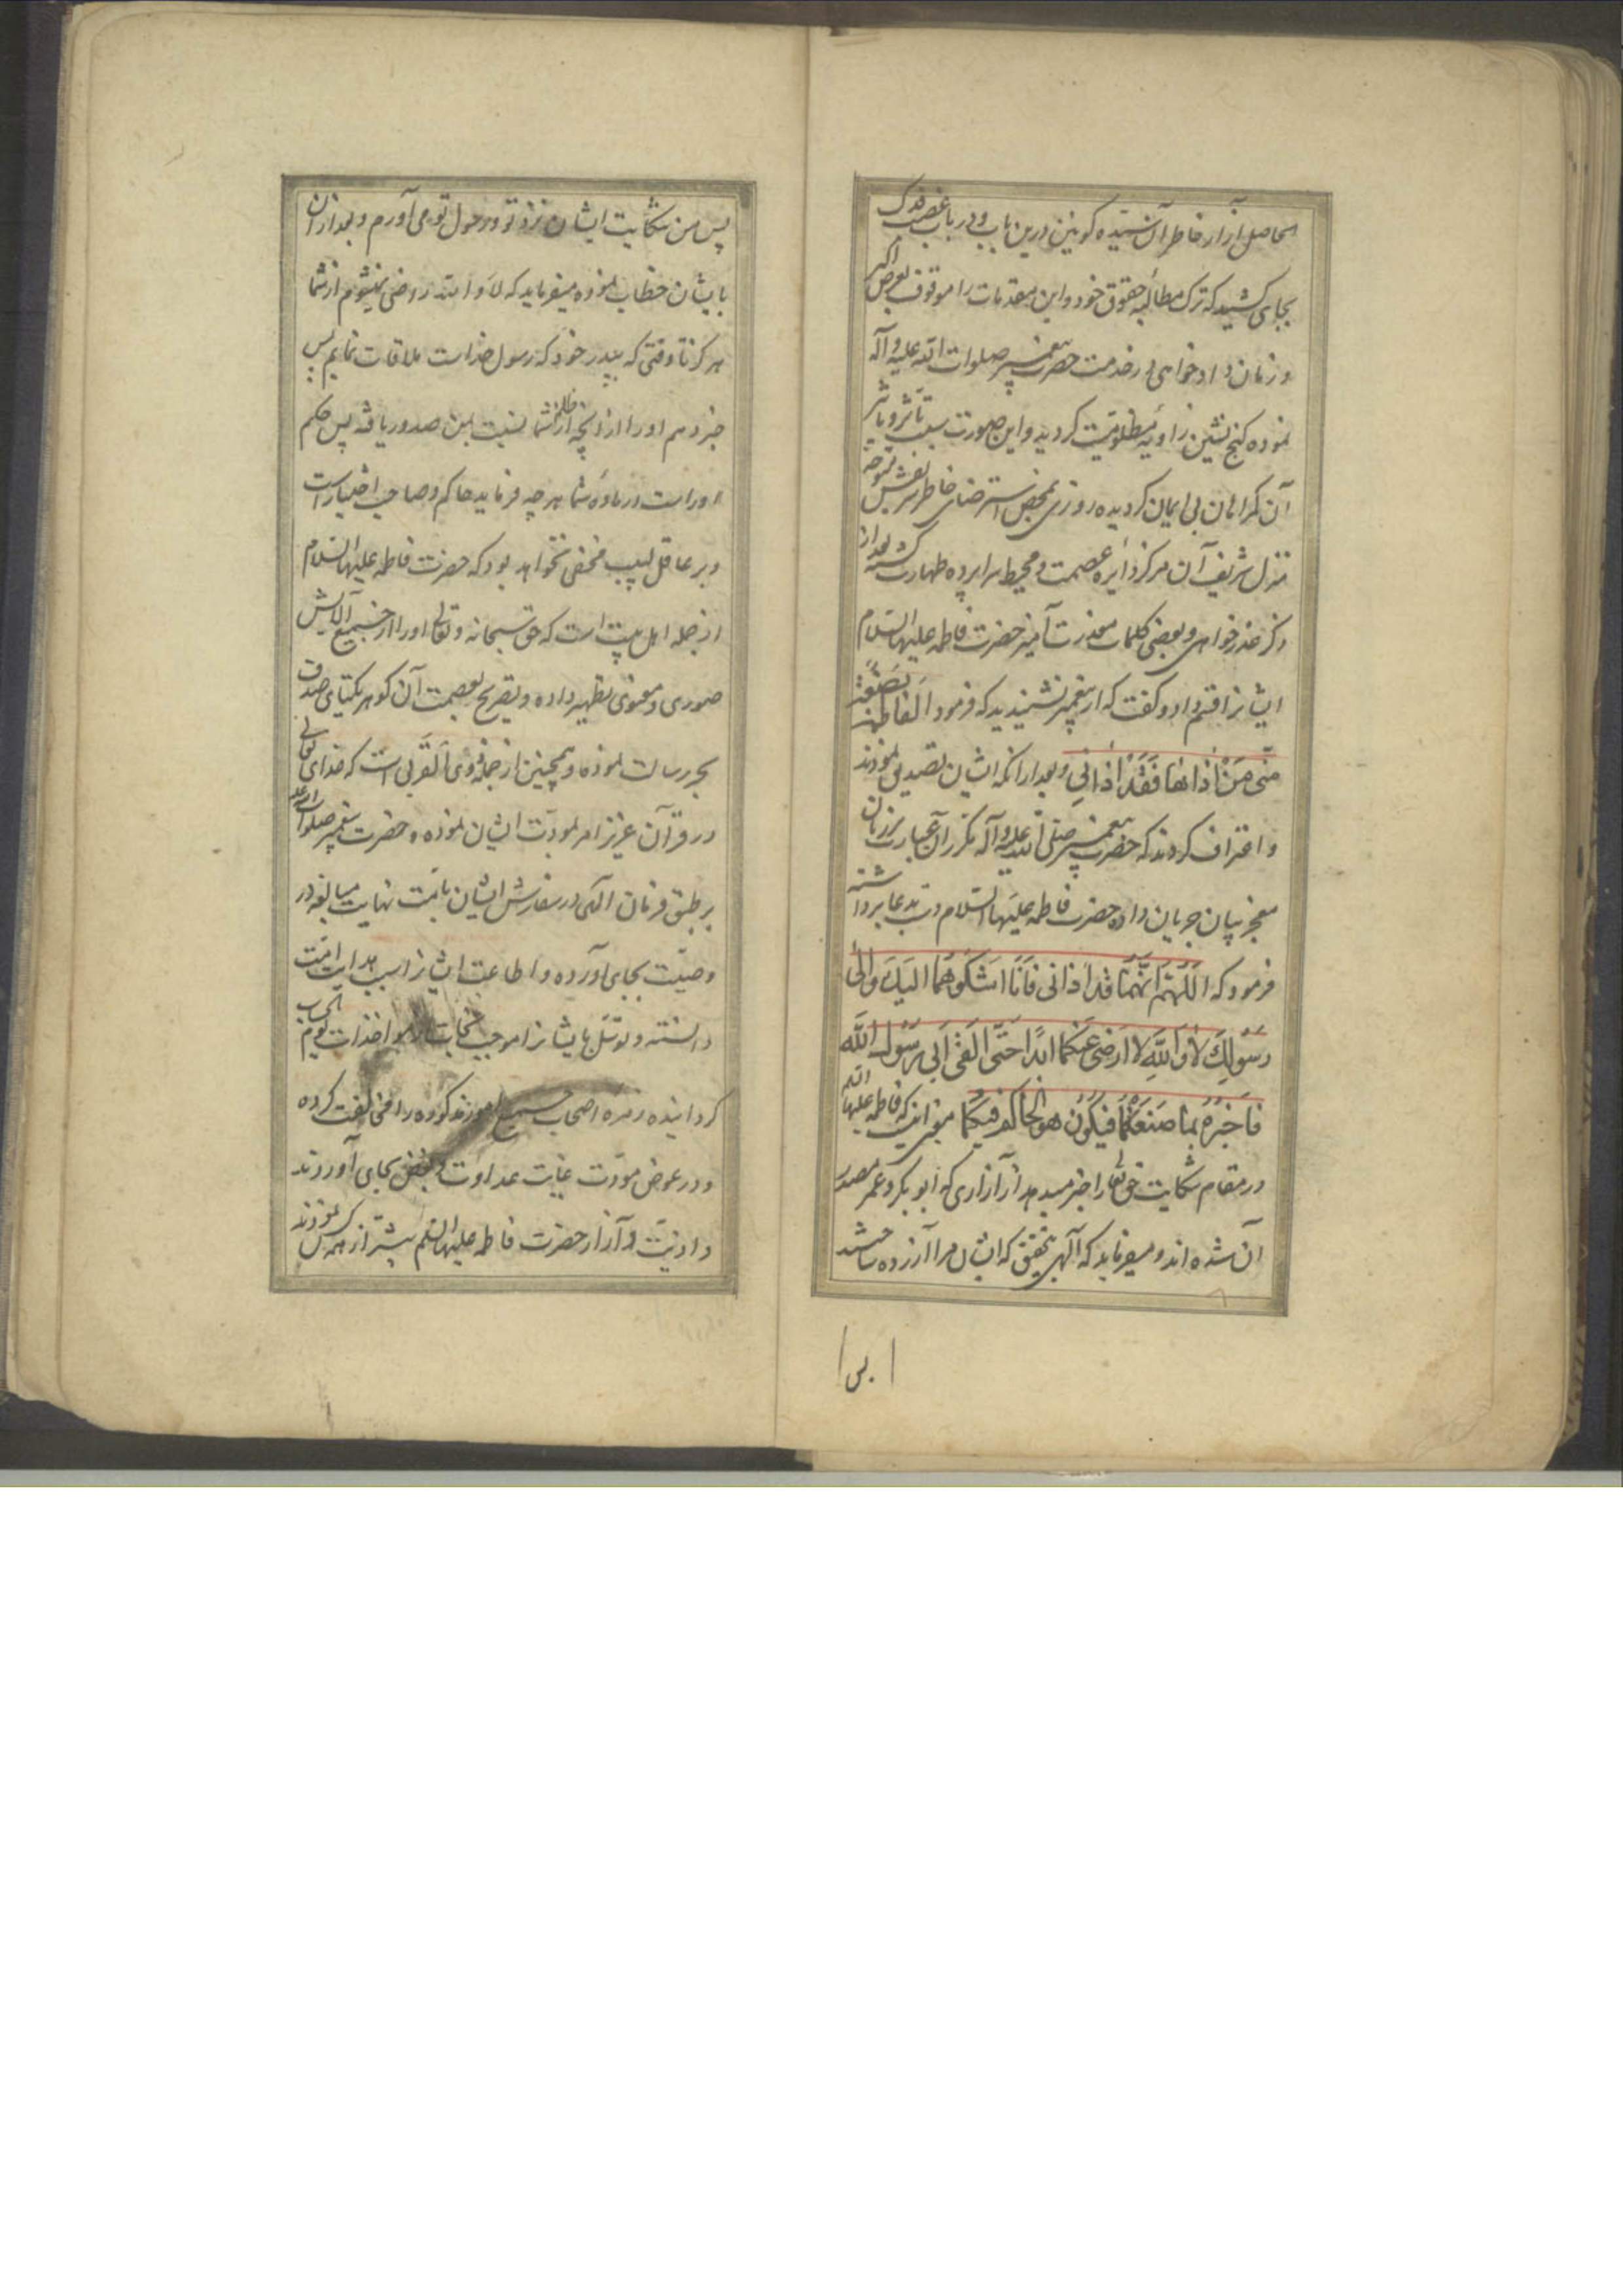 الحاصل آزار خاطر آن سیّده کونین درین باب و در باب غصب فدک
بجای کشید که ترک مطالبه حقوق خود و این مقدمات را موقوف بعرض اکبر
و زمان دادخواهی در خدمت حضرت پیغمبر صلوات الله علیه و آله
نموده کنج نشین زاویه مظلومیت کردید و این صورت سبب تأثر و تأثیر
آن کمراهان بی ایمان کردیده روزی بمحض استرضای خاطر شریفش متوجه
منزل شریف آن مرکز دایره عصمت و محیط سرابرده طهارت کشته بعد از
ذکر عذرخواهی و بعضی کلمات معذرت آمیز حضرت فاطمه علیها السلام
ایشانرا قسم داد و کفت که از پیغمبر نشنیدید که فرمود الفاطمة بَضْعَةٌ
منّی مَنْ اذاها فَقَدْ اذانی و بعد از آنکه ایشان تصدیق نمودند
و اعتراف کردند که حضرت پیغمبر صلی الله علیه و آله مکرر آن عبارت بر زبان
معجز بیان جریان داده حضرت فاطمه علیها السلام دست بدعا برداشته
فرمود که اللّهُمَّ انَّهُمٰا قَد اَذانی فَاَنَا اَشکُوهُمٰا الیکَ وَ اِلیٰ
رَسُولِکَ لاٰ وَ اللّهِ لا ارَضی عَنکمٰا ابَدًا حَتّی اَلقی اَبی رَسُول الله
فاَخبِرُهُ بمٰا صَنَعتُمٰا فَیکُون هو الحٰاکم فیکمٰا معنی اینست که فاطمه علیها السلام
در مقام شکایت حق تعالی را خبر میدهد از آزاری که ابو بکر و عمر مصدر
آن شده اند و میفرماید که آلهی بتحقیق که ایشان مرا آزرده ساختند
پس
پس من شکایت ایشان نزد تو و رسول تو می آورم و بعد از آن
بایشان خطاب نموده میفرماید که لا و الله راضی نمیشوم از شما
هرکز تا وقتی که بپدر خود که رسول خداست ملاقات نمایم پس
خبر دهم او را از آنچه از ظلم شما نسبت بمن صدور یافته پس حکم
اوراست در ماده شما هر چه فرماید حاکم و صاحب اختیار است
و بر عاقل لبیب مخفی نخواهد بود که حضرت فاطمه علیها السلام
از جمله اهل بیت است که حق سبحانه و تعالی او را از جمیع آلایش
صوری و معنوی تطهیر داده و تصریح بعصمت آن کوهر یکتای صدف
بحر رسالت نموده و همچنین از جمله ذوی اَلقُربی است که خدای تعالی
در قرآن عزیز امر بمودّت ایشان نموده و حضرت پیغمبر صلوات الله علیه
بر طبق فرمان الهی در سفارش ایشان بامّت نهایت مبالغه در
وصیّت بجای آورده و اطاعت ایشانرا سبب هدایت امّت
دانسته و توسّل بایشانرا موجب نجات از مؤاخذات یوم الحساب
کردانیده زمره اصحاب جمیع امور مذکوره را مخالفت کرده
و در عوض مودّت غایت عداوت و بغض بجای آوردند
و اذیّت و آزار حضرت فاطمه علیها السلم بیشتر از همه کس نمودند